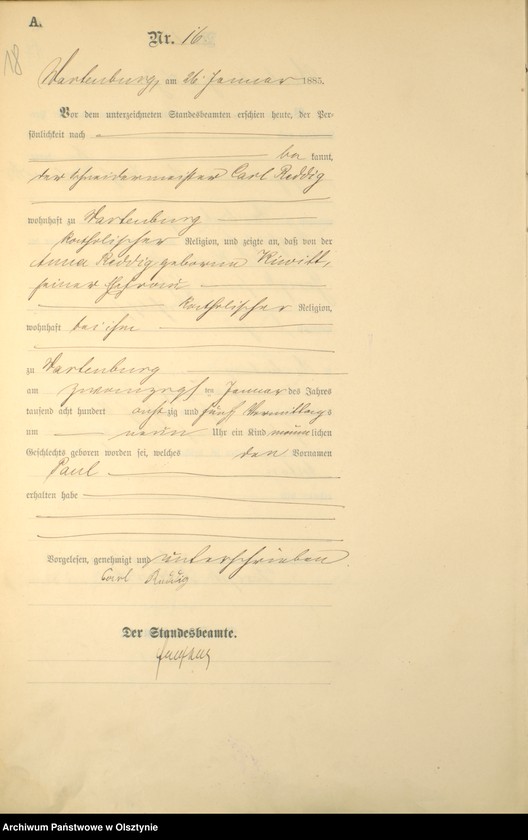 A.
18
Nr. 16.
Wartenburg, am 26. Januar 1885.
Vor dem unterzeichneten Standesbeamten erschien heute, der Per-
sönlichkeit nach
be kannt,
der Schneidermeister Carl Reddig
wohnhaft zu Wartenburg
katholischer Religion, und zeigte an, daß von der
Anna Reddig geborene Kiwitt,
seiner Ehefrau
katholischer Religion,
wohnhaft bei ihm
zu Wartenburg
am zwanzigsten Januar des Jahres
tausend acht hundert acht zig und fünf Vormittags
um neun Uhr ein Kind männ lichen
Geschlechts geboren worden sei, welches den Vornamen
Paul
erhalten habe
Vorgelesen, genehmigt und unterschrieben
Carl Reddig
Der Standesbeamte.
Archiwum Państwowe w Olsztynie